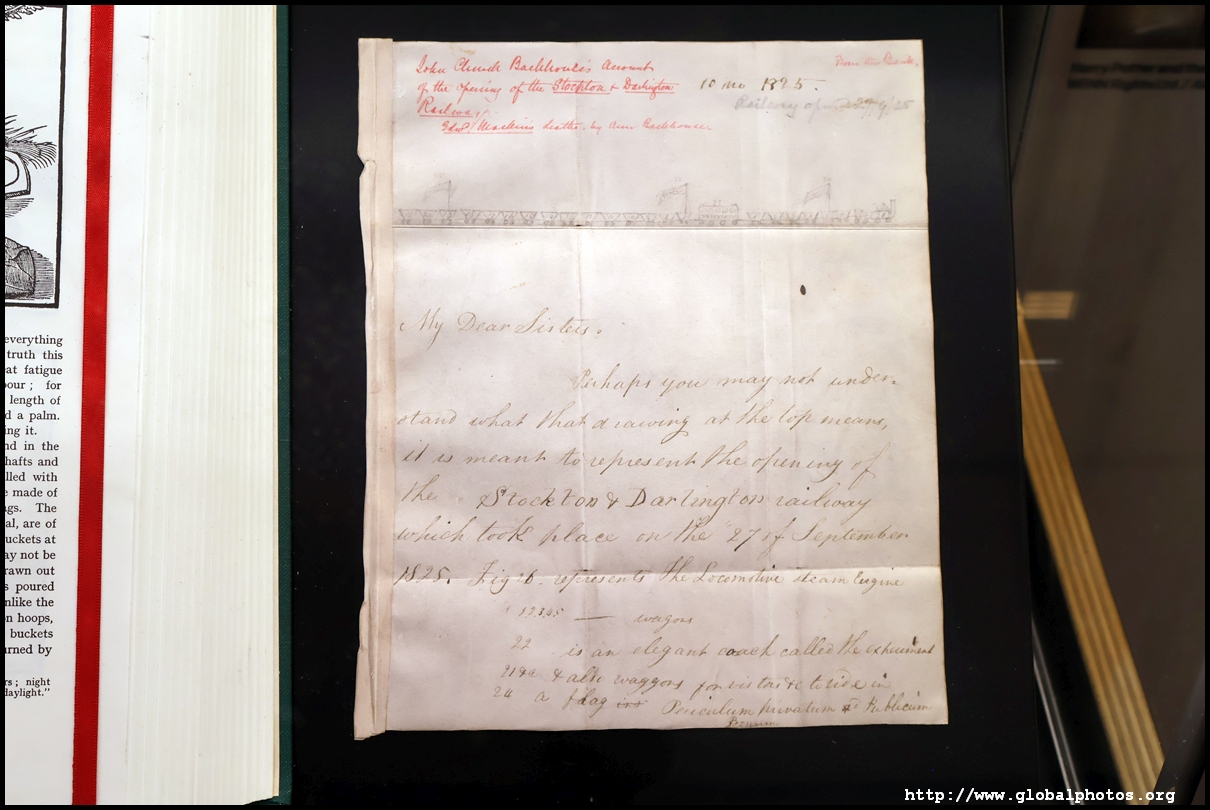 everything
truth this
at fatigue
our ; for
length of
d a palm.
ing it.
nd in the
hafts and
lled with
e made of
gs. The
al, are of
uckets at
ay not be
rawn out
s poured
nlike the
n hoops,
buckets
urned by
rs ; night
daylight."
John Church Backhouse's Account
of the opening of the Stockton & Darlington
Railway
deaths. by Ann Backhouse
10 mo 1825.
Railway 27/9/25
My Dear Sisters.
Perhaps you may not under-
stand what that drawing at the top means,
it is meant to represent the opening of
the Stockton & Darlington railway
which took place on the 27 of September
1825. Fig 26. represents the Locomotive steam Engine
12345 — wagons
22 is an elegant coach called the experiment
& also waggons for visitors &c to ride in
24 a flag Periculum privatum Publicum
Bonum
http://www.globalphotos.org